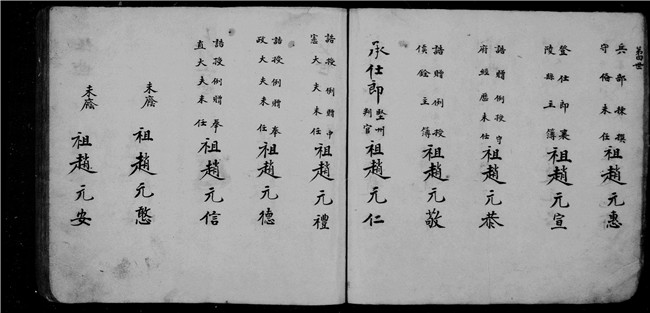 第四世
兵部揀撰
守俻未任
祖趙元惠
登仕即襄
陵縣主簿
祖趙元宣
誥贈例授守
府經歷未任
祖趙元恭
誥贈例授
候銓主簿
祖趙元敬
承仕即
州
判官
祖趙元仁
誥授例贈中
憲大夫未任
祖趙元禮
誥授例贈奉
政大夫未任
祖趙元德
誥授例贈奉
直大夫未任
祖趙元信
未廕
祖趙元憨
未廕
祖趙元安